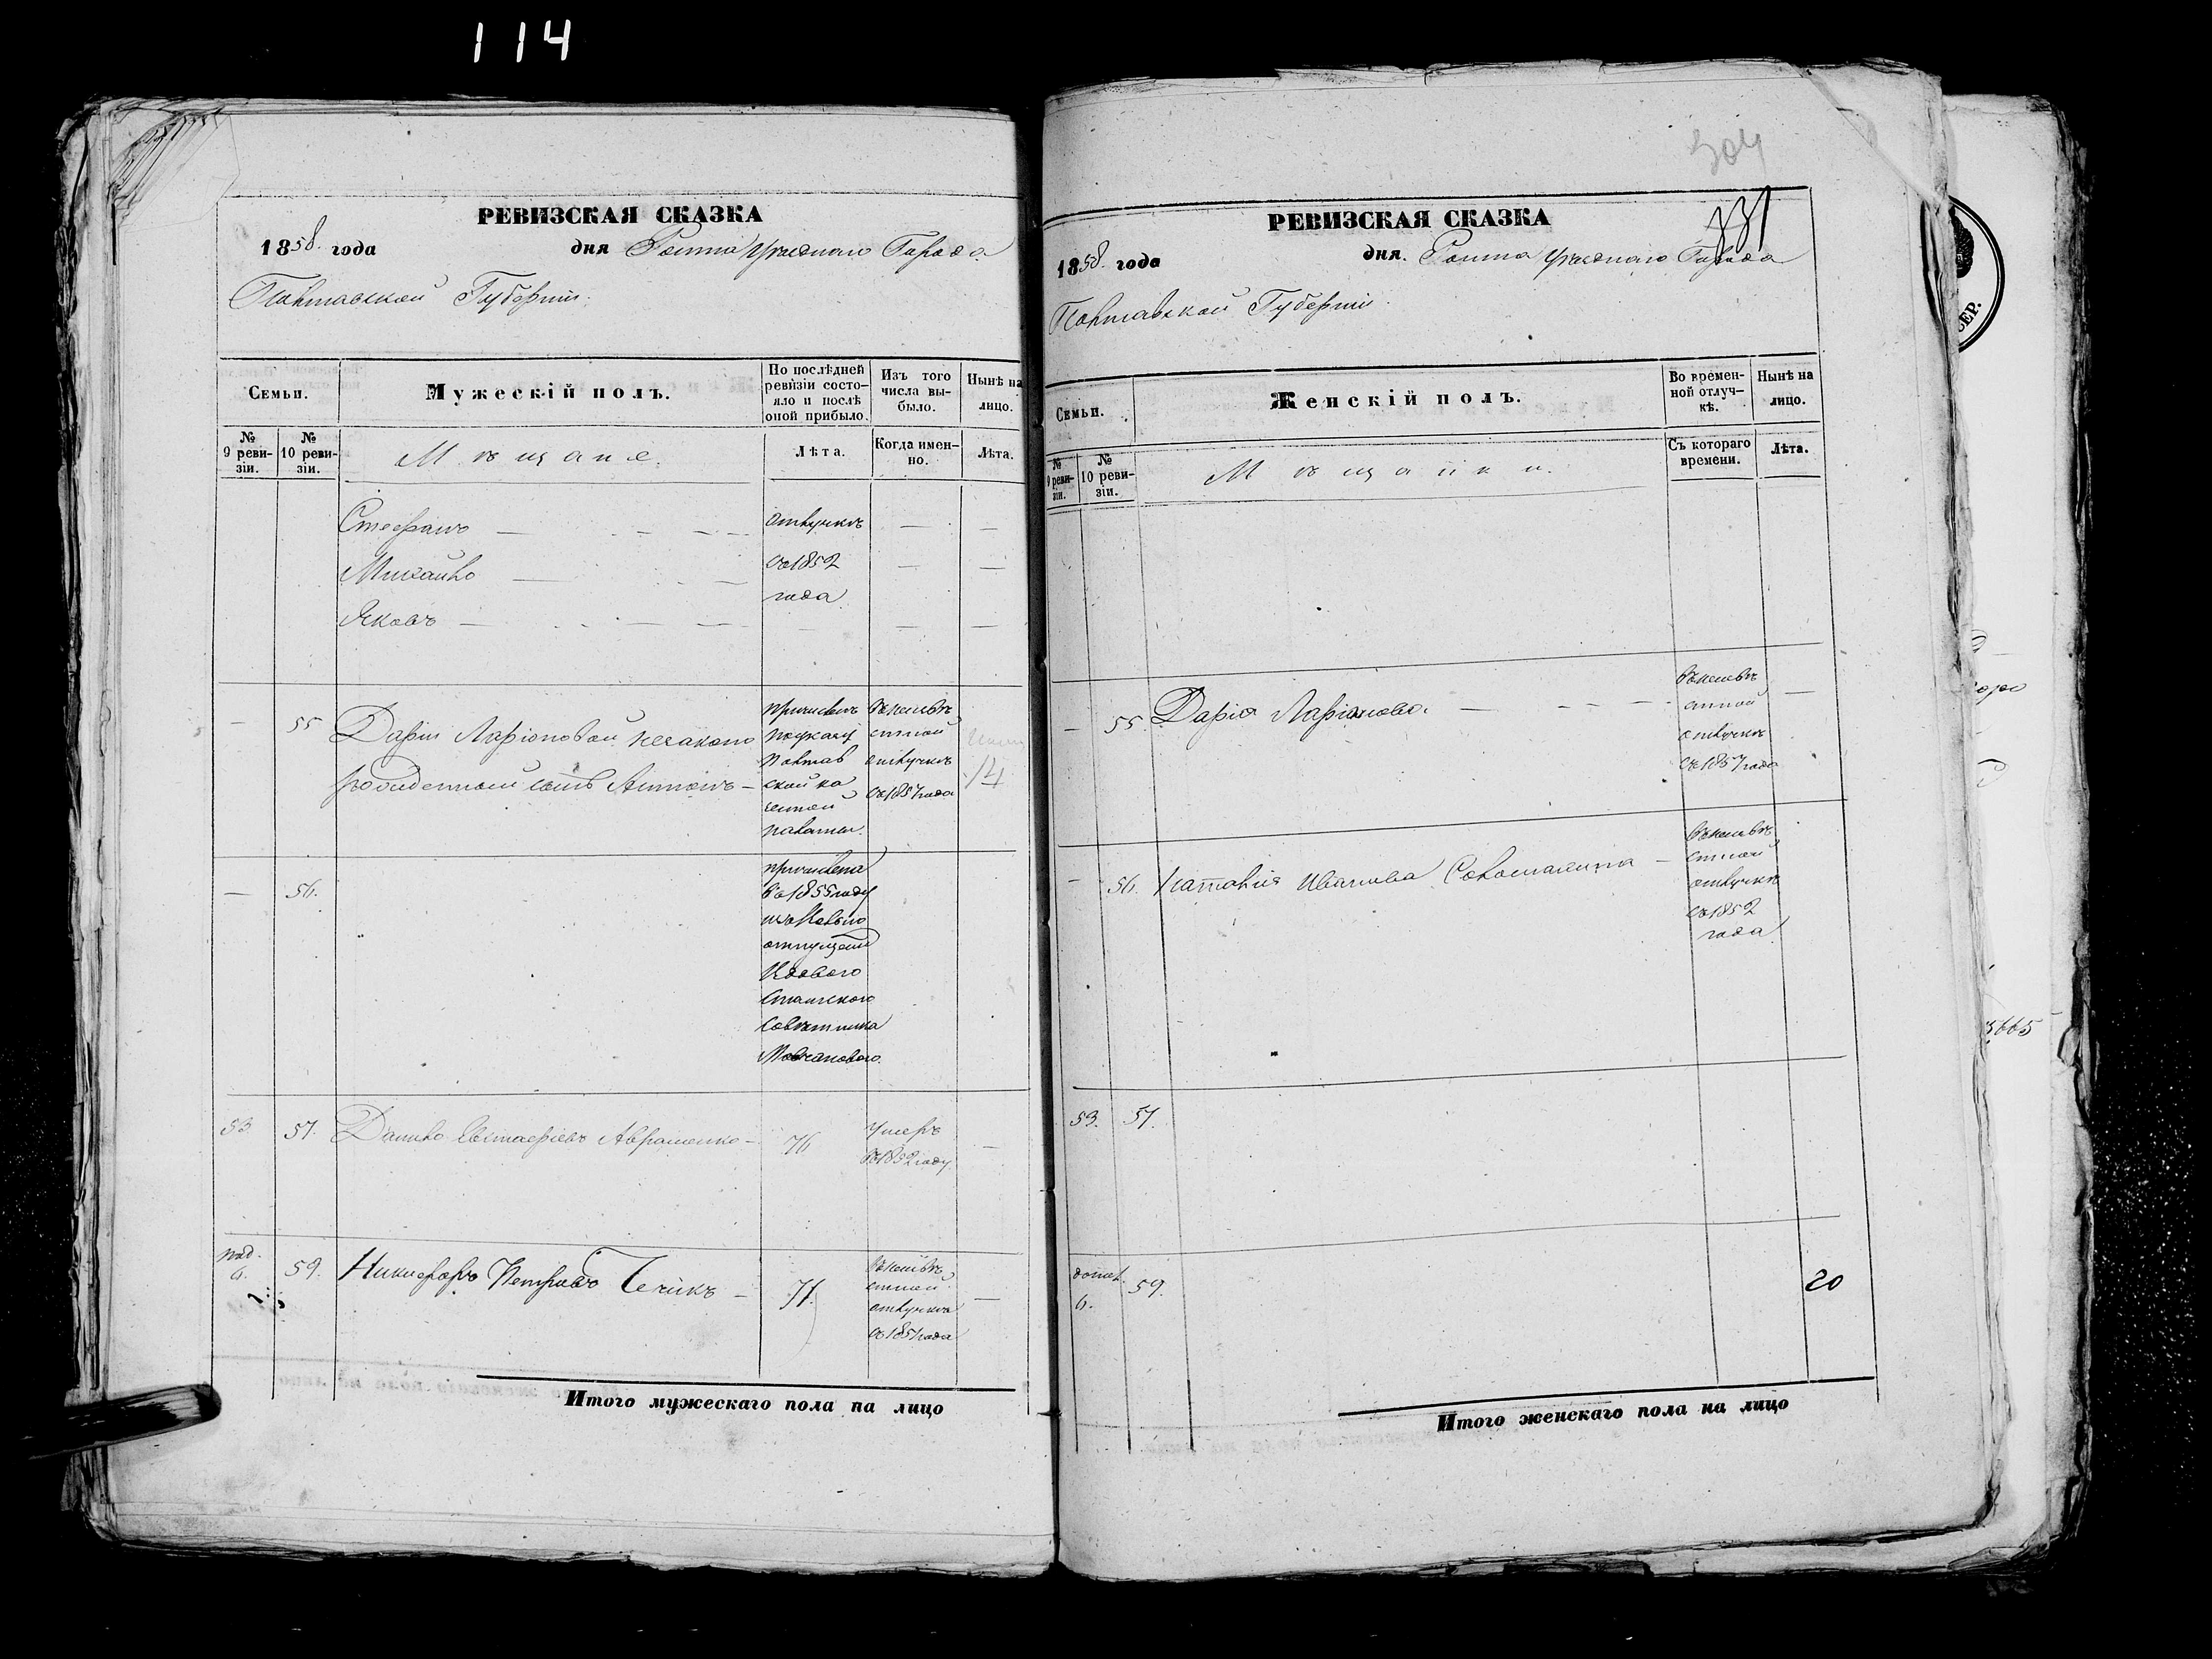 114
РЕВИЗСКАЯ СКАЗКА
1858 года дня Ромна Уѣзднаго Города
Полтавской Губерніи.
Семьи.
Мужескій полъ.
По послѣдней ревизіи состо-
яло и послѣ оной прибыло.
Изъ того числа вы-
было.
Нынѣ на лицо.
№ 9 реви-
зіи.
№ 10 реви-
зіи.
Мѣщане.
Лѣта.
Когда имен-
но.
Лѣта.
Стефанъ
отлучкѣ
Михайло
съ 1852
года
Яковъ
55
Даріи Ларіоновой незаконо
рожденный сынъ Антонъ
причисленъ
по указу
Полтав
ской ка
зенной
палаты.
въ неизвѣ
стной
отлучкѣ
съ 1857 года
14
56.
причислена
въ 1855 году
отпущен
Статского
Совѣтника
53
57.
Данило Евстафіевъ Авраменко
76
Умеръ
въ 1852 году
под.
6.
59.
Никифоръ Петровъ
71.
въ неизвѣ
стной
отлучкѣ
съ 1851 года
Итого мужескаго пола на лицо
304
331
РЕВИЗСКАЯ СКАЗКА
1858 года дня. Ромна Уѣзднаго Города
Полтавской Губерніи.
Семьи.
Женскій полъ.
Во времен-
ной отлуч-
кѣ.
Нынѣ на лицо.
№ 9 реви-
зіи.
№ 10 реви-
зіи.
Мѣщанки.
Съ котораго времени.
Лѣта.
55.
Дарія Ларіонова.
въ неизвѣ
стной
отлучкѣ
съ 1857 года
56.
Наталія Иванова
въ неизвѣ
стной
отлучкѣ
съ 1852
года
53.
57.
6.
59.
20
Итого женскаго пола на лицо
СЕР.
5665